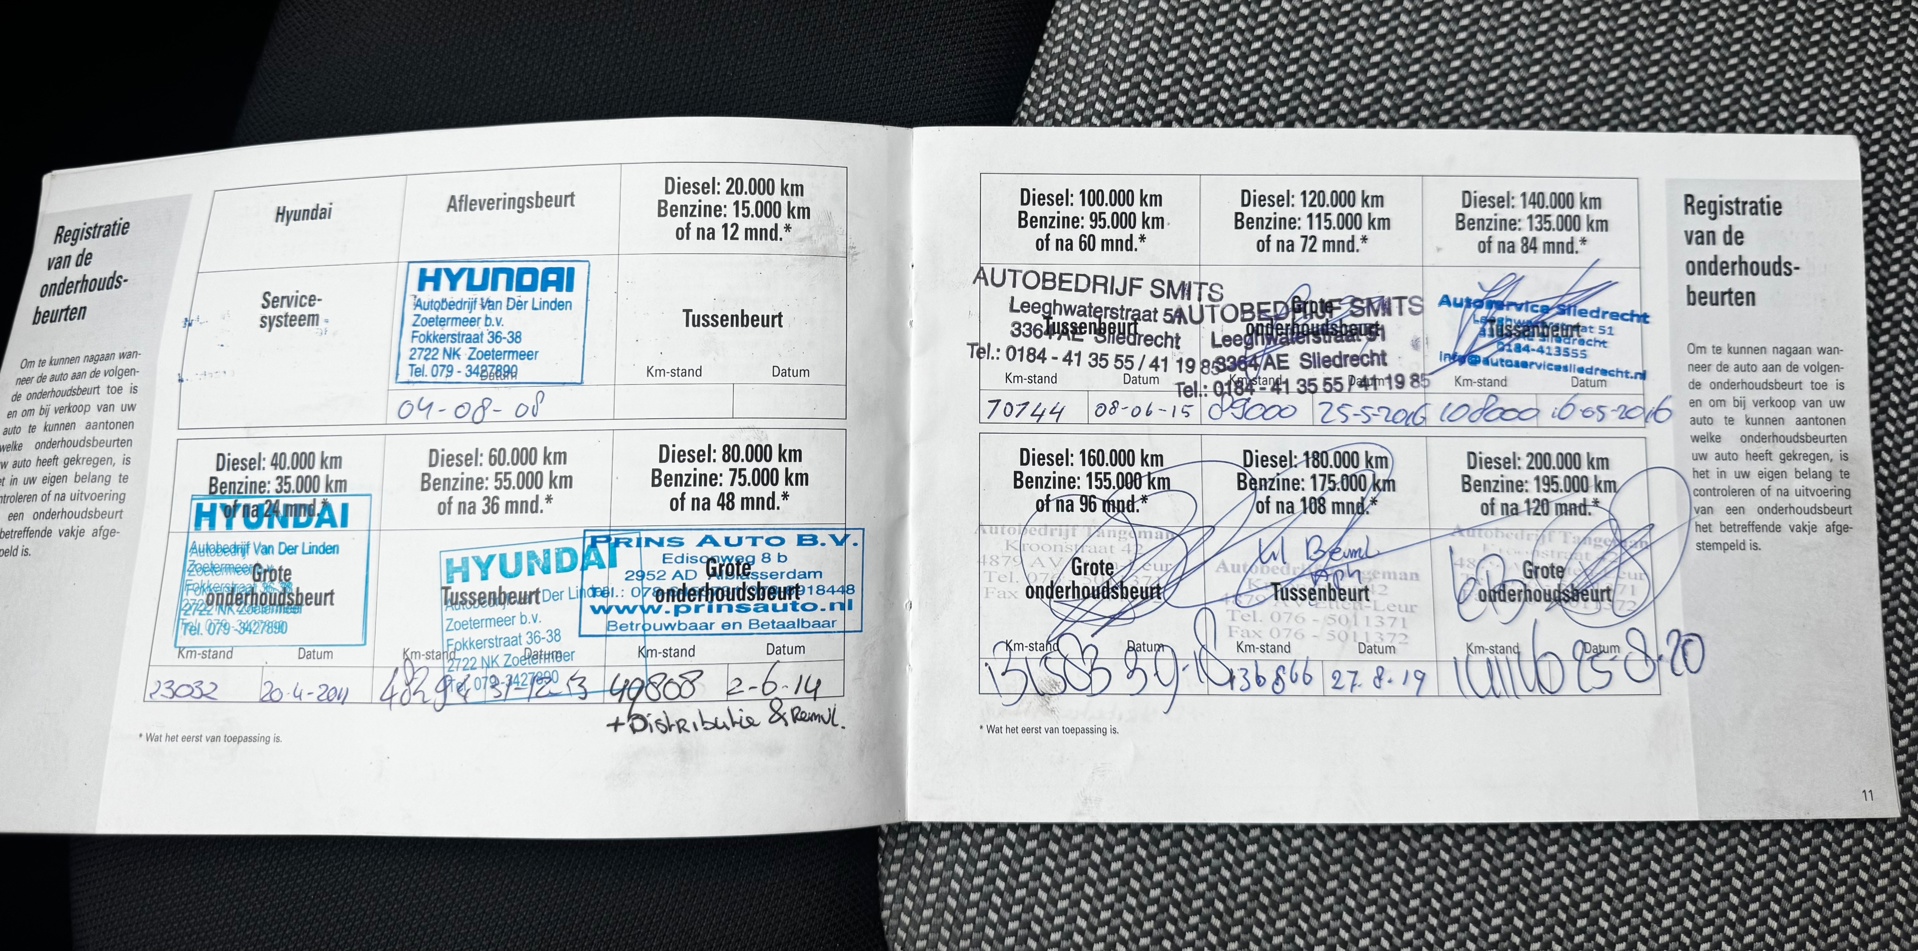 Registratie
van de
onderhouds-
beurten
Om te kunnen nagaan wan-
neer de auto aan de volgen-
de onderhoudsbeurt toe is
en om bij verkoop van uw
auto te kunnen aantonen
welke onderhoudsbeurten
w auto heeft gekregen, is
et in uw eigen belang te
ntroleren of na uitvoering
een onderhoudsbeurt
betreffende vakje afge-
peld is.
Hyundai
Afleveringsbeurt
Diesel: 20.000 km
Benzine: 15.000 km
of na 12 mnd.*
Service-
systeem
HYUNDAI
Autobedrijf Van Der Linden
Zoetermeer b.v.
Fokkerstraat 36-38
2722 NK Zoetermeer
Tel. 079 - 3427890
Datum
04-08-08
Tussenbeurt
Km-stand Datum
Diesel: 40.000 km
Benzine: 35.000 km
of na 24 mnd.*
HYUNDAI
Autobedrijf Van Der Linden
Zoetermeer
Fokkerstraat 36-38
2722 NK Zoetermeer
Tel. 079-3427890
Grote
onderhoudsbeurt
Km-stand Datum
23032 20-4-2011
Diesel: 60.000 km
Benzine: 55.000 km
of na 36 mnd.*
HYUNDAI
Tussenbeurt
Autobedrijf Van Der Linden
Zoetermeer b.v.
Fokkerstraat 36-38
2722 NK Zoetermeer
Tel. 079-3427890
Km-stand Datum
31-12-13
Diesel: 80.000 km
Benzine: 75.000 km
of na 48 mnd.*
PRINS AUTO B.V.
Edisonweg 8 b
2952 AD Alblasserdam
www.prinsauto.nl
Betrouwbaar en Betaalbaar
Grote
onderhoudsbeurt
Km-stand Datum
49808 2-6-14
+Distributie & Remvl.
* Wat het eerst van toepassing is.
Diesel: 100.000 km
Benzine: 95.000 km
of na 60 mnd.*
AUTOBEDRIJF SMITS
Leeghwaterstraat 51
3364 AE Sliedrecht
Tel.: 0184 - 41 35 55 / 41 19 85
Tussenbeurt
Km-stand Datum
70744 08-06-15
Diesel: 120.000 km
Benzine: 115.000 km
of na 72 mnd.*
AUTOBEDRIJF SMITS
Leeghwaterstraat 51
3364 AE Sliedrecht
Tel.: 0184 - 41 35 55 / 41 19 85
Grote
onderhoudsbeurt
Km-stand Datum
89000 25-5-2016
Diesel: 140.000 km
Benzine: 135.000 km
of na 84 mnd.*
Autoservice Sliedrecht
Leeghwaterstraat 51
Sliedrecht
0184-413555
info@autoservicesliedrecht.nl
Tussenbeurt
Km-stand Datum
108000 16-05-2016
Diesel: 160.000 km
Benzine: 155.000 km
of na 96 mnd.*
Autobedrijf Tangeman
Kroonstraat 42
Grote
onderhoudsbeurt
Km-stand Datum
Diesel: 180.000 km
Benzine: 175.000 km
of na 108 mnd.*
Autobedrijf Tangeman
4879 AV Etten-Leur
Tel. 076 - 5011371
Fax 076 - 5011372
Tussenbeurt
Km-stand Datum
136866 27.8.19
Diesel: 200.000 km
Benzine: 195.000 km
of na 120 mnd.*
Autobedrijf Tangeman
Grote
onderhoudsbeurt
Km-stand Datum
25-8-20
* Wat het eerst van toepassing is.
Registratie
van de
onderhouds-
beurten
Om te kunnen nagaan wan-
neer de auto aan de volgen-
de onderhoudsbeurt toe is
en om bij verkoop van uw
auto te kunnen aantonen
welke onderhoudsbeurten
uw auto heeft gekregen, is
het in uw eigen belang te
controleren of na uitvoering
van een onderhoudsbeurt
het betreffende vakje afge-
stempeld is.
11